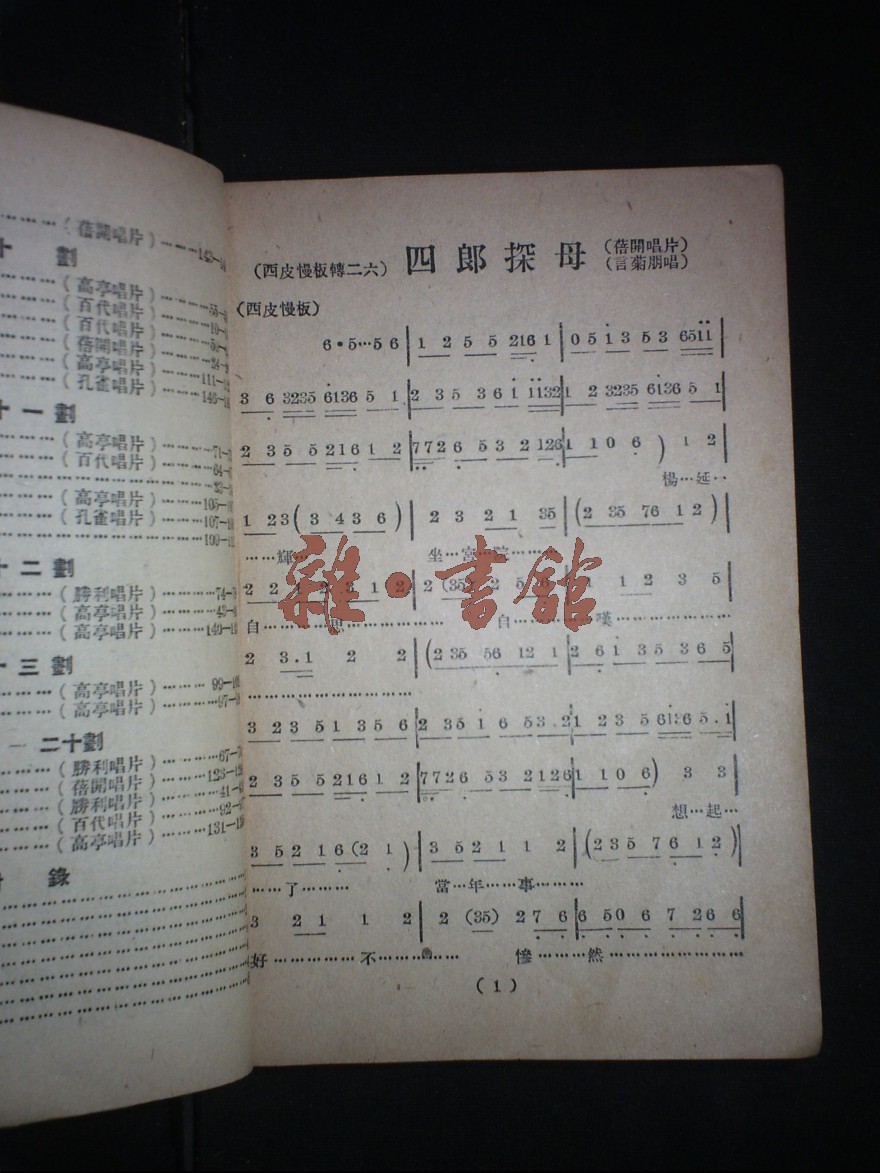 (蓓開唱片)……143-
十 劃
……(高亭唱片)……55-
……(百代唱片)……10-
……(百代唱片)
……(蓓開唱片)
……(高亭唱片)……111-
……(孔雀唱片)……146-
十一劃
……(高亭唱片)
……(百代唱片)……64-
……105-
……(高亭唱片)
……(孔雀唱片)……107-
十二劃
……(勝利唱片)……74-
……(高亭唱片)……43-
……(高亭唱片)……140-
十三劃
……(高亭唱片)……99-
……(高亭唱片)……97-
二十劃
……(勝利唱片)……67-
……(蓓開唱片)……123-
……(勝利唱片)……41-
……(百代唱片)……92-
……(高亭唱片)……131-
錄
(西皮慢板轉二六) 四郎探母 (蓓開唱片)
(言菊朋唱)
(西皮慢板)
6·5…5 6 | 1 2 5 5 216 1 | 0 5 1 3 5 3 6511
3 6 3235 6136 5 1 | 2 3 5 3 6 1 1132 | 1 2 3235 6136 5 1
2 3 5 5 216 1 2 | 772 6 5 3 2 126 | 1 1 0 6 ) 1 2
楊…延…
1 23 (3 4 3 6) | 2 3 2 1 35 | (2 35 76 1 2)
……輝…… 坐…宮…院………
2 2 1 2 3 1 2 | 2 (35) 2 5 6 | 1 1 2 3 5
自……思………………自…………嘆………
2 3.1 2 2 | (2 35 56 12 1 | 2 6 1 3 5 3 6 5
3 2 3 5 1 3 5 6 | 2 3 5 1 6 5 3 2 | 1 2 3 5 6136 5.1
2 3 5 5 216 1 2 | 7726 53 2126 | 1 1 0 6 ) 3 3
想…起…
3 5 2 1 6 (2 1 ) | 3 5 2 1 1 2 | (2 3 5 7 6 1 2)
……了……… 當…年…事………
3 2 1 1 2 | 2 (35) 2 7 6 | 6 50 6 7 26 6
好………………不……………… 慘………然……………………
(1)
雜·書館